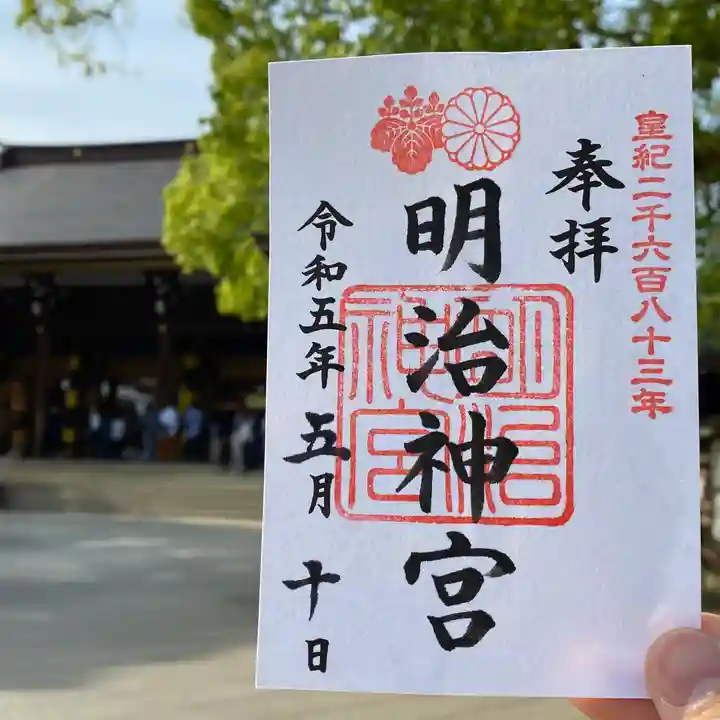 皇紀二千六百八十三年
奉拝
明治神宮
明治神宮
令和五年五月十日